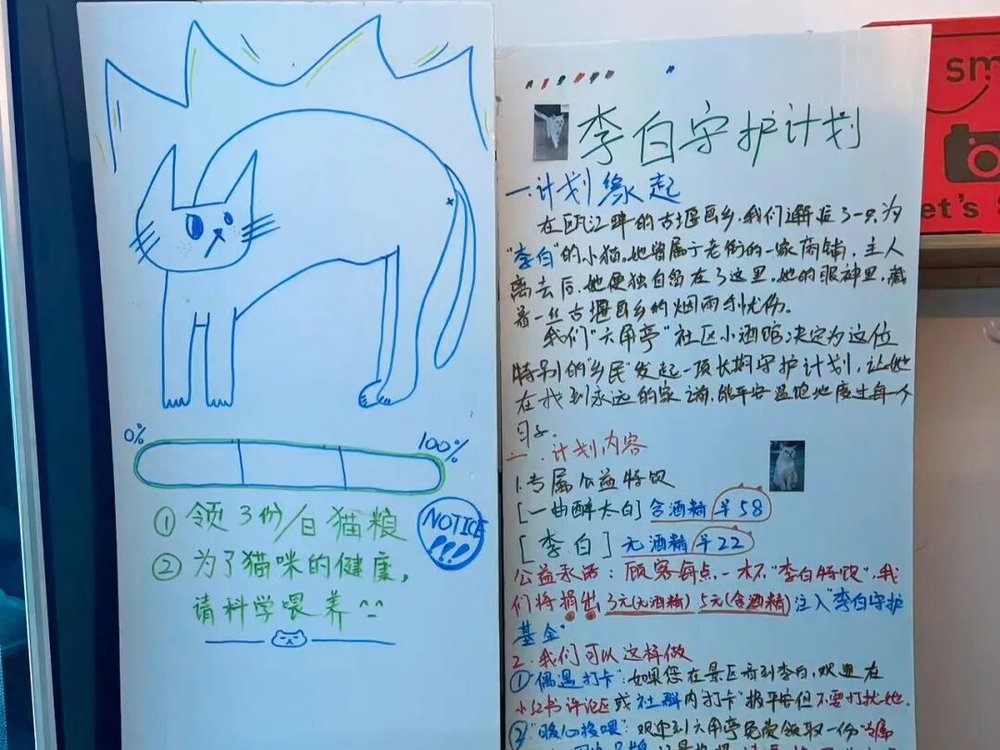 0%
100%
① 领3份/日猫粮
② 为了猫咪的健康,
请科学喂养^^
NOTICE
!!!
李白守护计划
一.计划缘起
在瓯江畔的古堰画乡,我们邂逅了一只为
"李白"的小猫。她曾属于老街的一家商铺,主人
离去后,她便独自留在了这里。她的眼神里,藏
着一丝古堰画乡的烟雨和忧伤。
我们"六角亭"社区小酒馆决定为这位
特别的"乡民"发起一项长期守护计划,让她
在找到永远的家之前,能平安温饱地度过每一个
日子。
二.计划内容
1.专属公益特饮
[一曲醉太白] 含酒精 ¥58
[李白] 无酒精 ¥22
公益承诺: 顾客每点一杯"李白特饮",我
们将捐出 3元(无酒精) 5元(含酒精) 注入"李白守护
基金"
2.我们可以这样做
①"偶遇打卡": 如果您在景区看到李白,欢迎在
小红书评论区或社群内打卡"报平安但不要打扰她.
②"暖心投喂": 欢迎到六角亭免费领取一份"专属
sm
et's